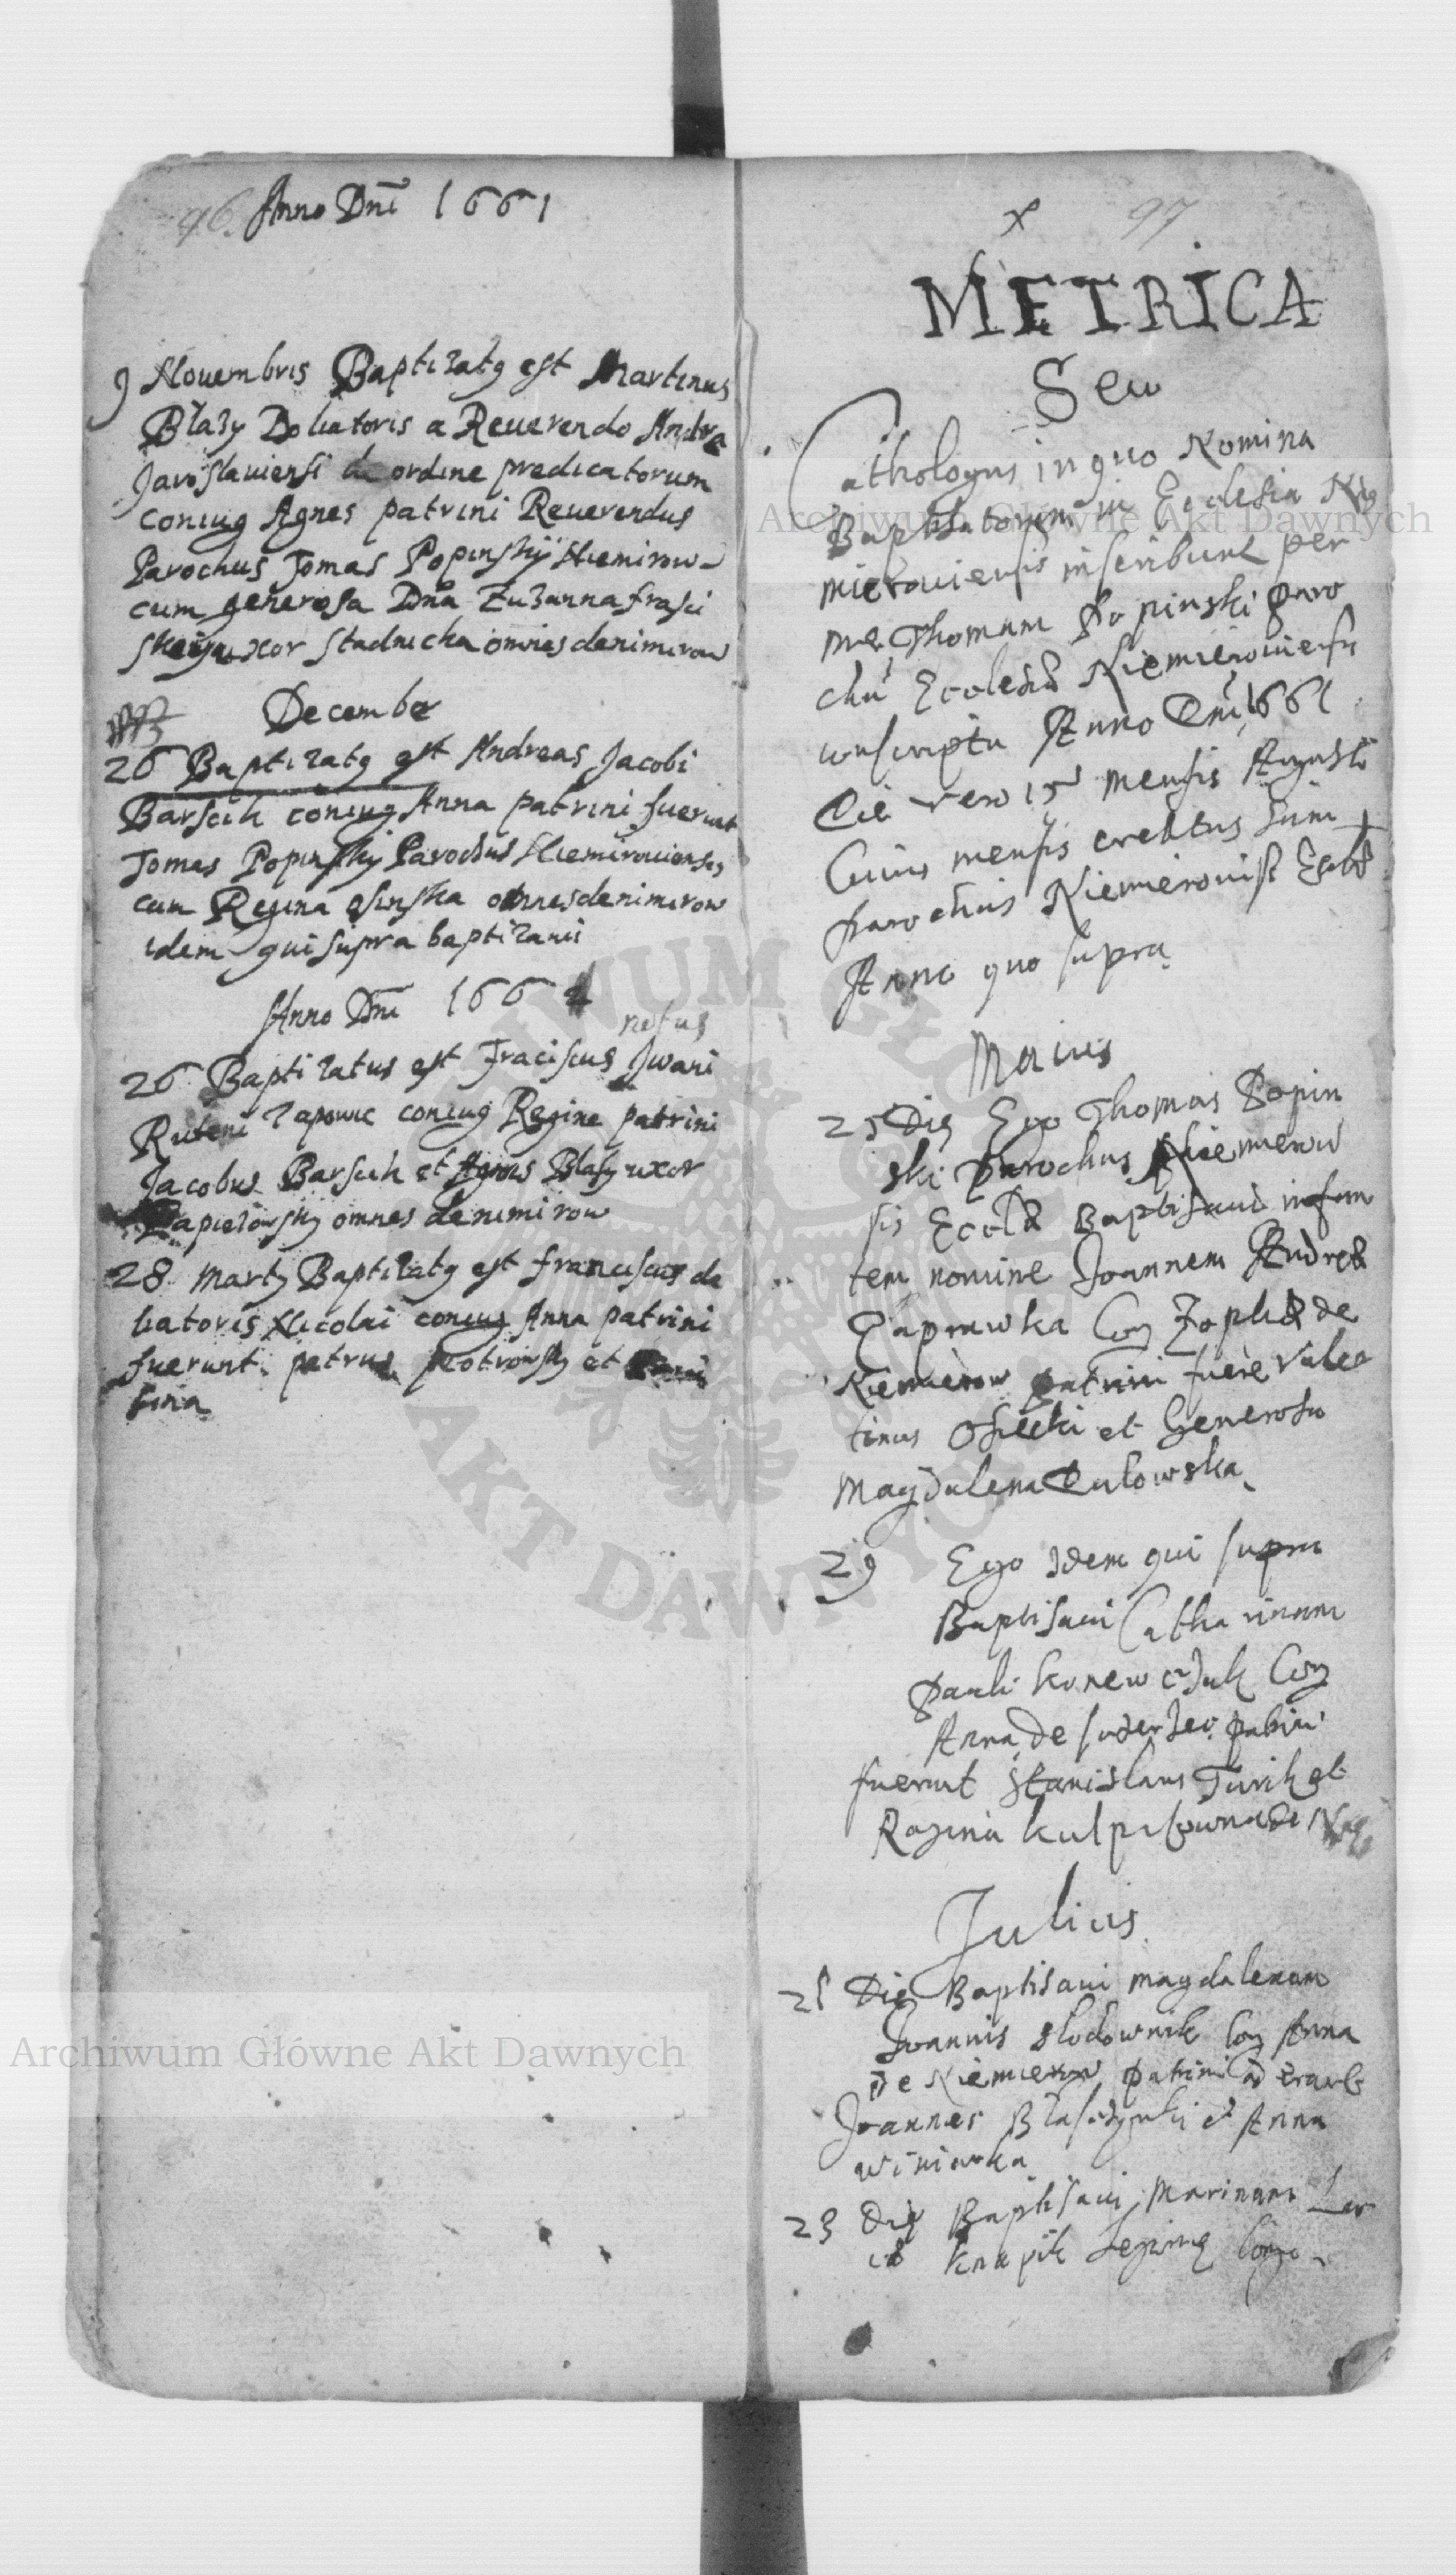 96. Anno Dni 1661
9 Nouembris Baptizatg est Martinus
Blazy Doliatoris a Reuerendo Andrea
Jaroslauiensi de ordine predicatorum
coniug Agnes patrini Reuerendus
Parochus Tomas Popinskÿ Niemirow-
cum generosa Dna Zuzanna
uxor Stadnicka omnes de nimirow
December
26 Baptizatg est Andreas Jacobi
Barscik coniug Anna patrini fuerunt
Tomas Popinskÿ Parochus Niemirouiensis
cum Regina osinska omnes de nimirow
idem qui supra baptizaui
Anno Dni 166
natus
26 Baptizatus est Fraciscus Jwani
Ruteni coniug Regine patrini
Jacobus Barscik et Agnes Blasy uxor
omnes de nimirow
28 Marty Baptizatg est franciscus do
liatoris Nicolai coniug Anna patrini
fuerunt petrus piotrowsky et
97
METRICA
Seu
Cathologus in quo Nomina
Baptisatorum in Ecclesia Nie
mierouiensis inscribunt per
me Thomam Popinski paro
chu Ecclesiæ Niemierouiensis
conscripta Anno Dni 1661
Die vero 15 mensis Augusti
Cuius mensis creatus sum
parochus Niemierouis Eccl
Anno quo supra
Maius
25 Die Ego Thomas Popin
ski parochus Niemierow
sis Eccl Baptisaui infan
tem nomine Joannem Andreæ
Paprawka Con Zophiæ de
Niemierow patrini fuere Valen
tinus Osiecki et Generosa
Magdalena Dulowska
29 Ego Idem qui supra
Baptisaui Catharinam
Pauli konewczuk Con
Anna de patrini
fuerunt Stanislaus Turik et
Regina de
Julius
21 Die Baptisaui magdalenam
Joannis slodownik Con Anna
De Niemierow patrini aderant
Joannes et Anna
winiarka
23 Die Baptisaui Marinam
knapik Con
Archiwum Główne Akt Dawnych
Archiwum Główne Akt Dawnych